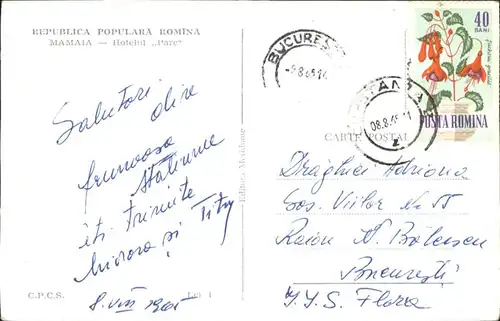 REPUBLICA POPULARĂ ROMÎNĂ
MAMAIA — Hotelul „Parc"
Salutări dire
frumoasa
stațiune
îți trimite
Miorara și Titry
8.VIII 1965
C.P.C.S.
Lei 1
Editura Meridiane
BUCUREȘTI
-9.8.65.14
CONSTANȚA
08.8.65-11
40
BANI
POSTA ROMINA
CARTE POSTALĂ
Draghici Adriana
Șos. Viilor N. 55
Raion N. Bălcescu
București
I.I.S. Flora